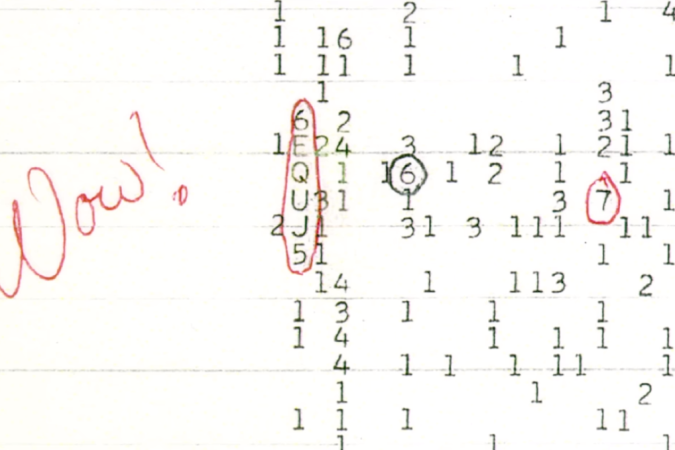 1 2 1 4
1 16 1 1
1 11 1 1 1
1 3
6 2 31
1 E 24 3 12 1 21 1
Q 1 1 6 1 2 1 1 1
U 31 1 3 7 1
Wow!
2 J 1 31 3 111 11 1
5 1 1 1
14 1 113 2
1 3 1 1 1
1 4 1 1 1 1
4 1 1 1 11 1
1 1 2
1 1 1 11
1 1 1